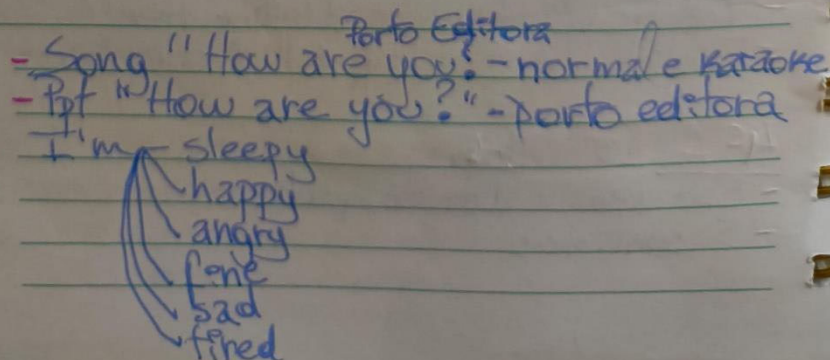 Porto Editora
- Song "How are you? - normal e karaoke
- Ppt "How are you?" - porto editora
I'm - sleepy
happy
angry
fine
sad
tired